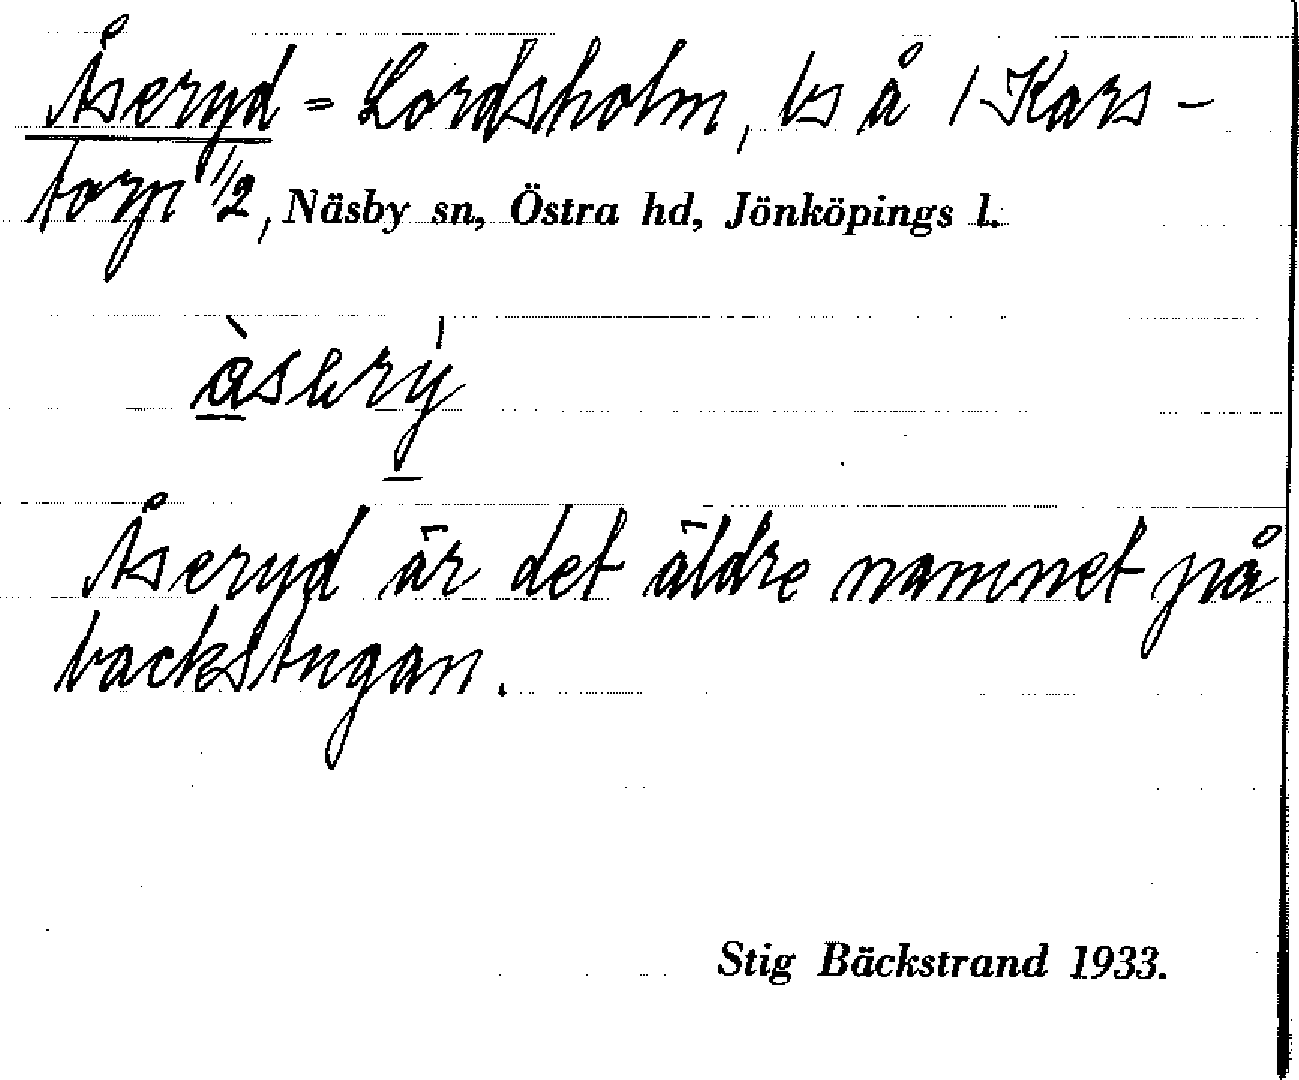 Åseryd = Lordsholm, bs å 1 Kars-
torp 1/2, Näsby sn, Östra hd, Jönköpings l.
Åseryd är det äldre namnet på
backstugan.
Stig Bäckstrand 1933.